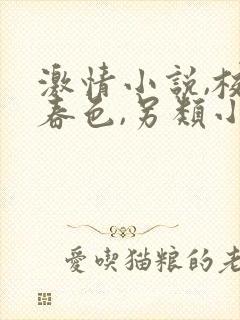 激情小説,校
春色,另類小
愛喫猫粮的老